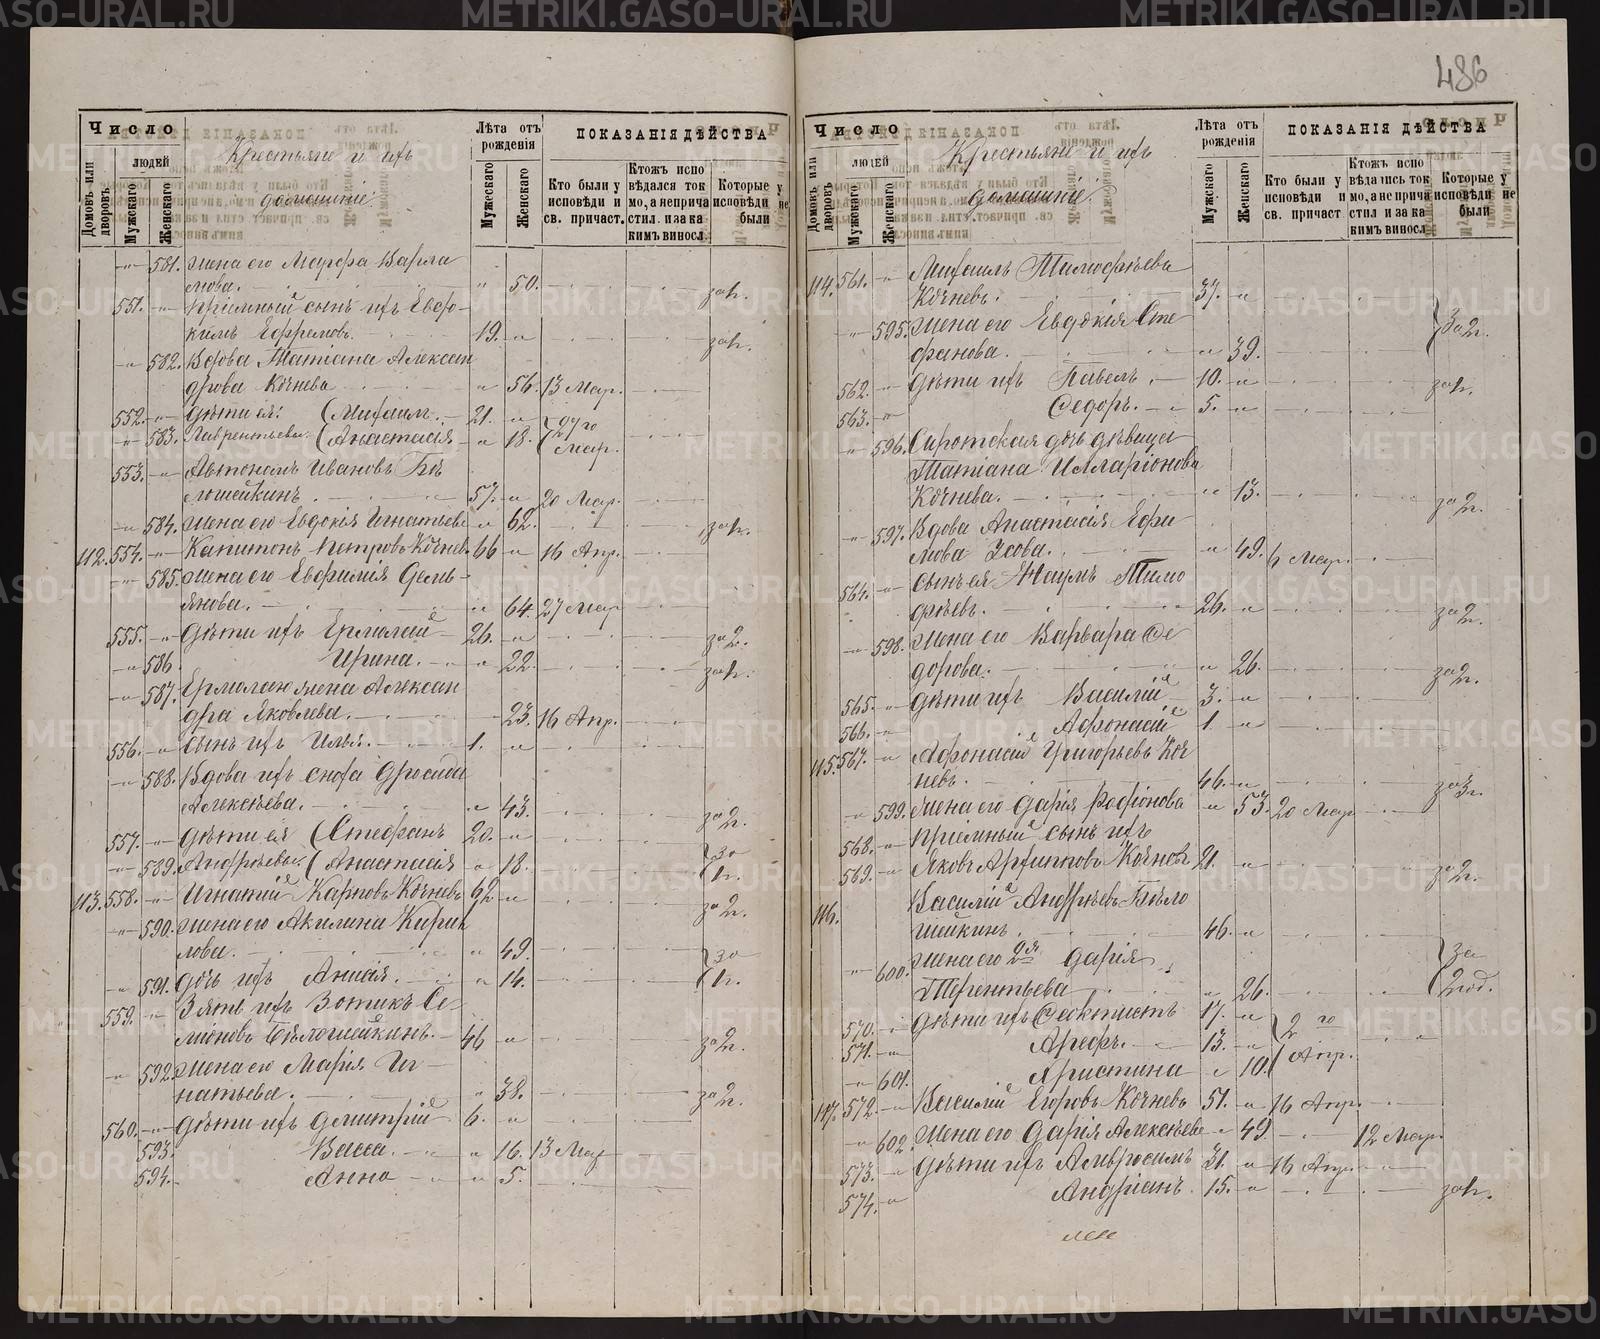 486
Число
Домовъ или дворовъ
людей
Мужескаго
Женскаго
Крестьяне и ихъ
домашніе
Лѣта отъ рожденія
Мужескаго
Женскаго
ПОКАЗАНІЯ ДѢЙСТВА
Кто были у исповѣди и св. причаст.
Ктожъ испо вѣдался ток мо, а неприча стил. и за ка кимъ виносл.
Которые у исповѣди не были
581. жена его Марфа Варла
мова. 50. за 1г.
551. Пріемный сынъ ихъ Евдо-
кимъ Ефремовъ. 19. за 1г.
582. Вдова Татіана Алексан
дрова Кочнева 56. 13 Мар.
552. дѣти ея: Михаилъ. 21.
583. Лаврентьевы. Анастасія 18. 27го Мар.
553. Автономъ Ивановъ Бѣ
лошейкинъ. 57. 20 Мар.
584. жена его Евдокія Игнатьева 62. за 1г.
112. 554. Капитонъ Петровъ Кочнев. 66 16 Апр.
585. жена его Евфимія Демь-
янова. 64. 27 Мар
555. дѣти ихъ Ермолай 26. за 2г.
586. Ирина. 22. за 1г.
587. Ермолаю жена Алексан
дра Яковлева. 23. 16 Апр.
556. сынъ ихъ Илья. 1.
588. Вдова ихъ сноха
Алексѣева. 43. за 2г.
557. дѣти ея Стефанъ 20.
589. Андреевы. Анастасія 18. за 1г.
113. 558. Игнатій Карповъ Кочневъ 62 за 2г.
590. жена его Акилина Кирил
лова. 49.
591. дочь ихъ Анисія. 14. за 1г.
559. Зять ихъ Зотикъ Се-
міоновъ Бѣлошейкинъ. 46 за 2г.
592. жена его Марія Иг-
натьева. 38. за 2г.
560. дѣти ихъ Димитрій 6.
593. Васса. 16. 13 Мар
594. Анна 5.
Число
Домовъ или дворовъ
людей
Мужескаго
Женскаго
Крестьяне и ихъ
домашніе
Лѣта отъ рожденія
Мужескаго
Женскаго
ПОКАЗАНІЯ ДѢЙСТВА
Кто были у исповѣди и св. причаст
Ктожъ испо вѣдались ток мо, а неприча стил. и за ка кимъ виносл
Которые у исповѣди не были
114. 561. Михаилъ Тимофѣевъ
Кочневъ. 37.
595. жена его Евдокія Сте
фанова. 39. За 2г.
562. дѣти ихъ Павелъ. 10. за 1г.
563. Ѳедоръ. 5.
596. Сиротская дочь дѣвица
Татіана Илларіонова
Кочнева. 13. за 2г.
597. Вдова Анастасія Ефи
мова Зсова. 49. 6 Мар.
564. сынъ ея Наумъ Тимо
фѣевъ. 26. за 2г.
598. жена его Варвара Ѳе
дорова. 26. за 2г.
565. дѣти ихъ Василій 3.
566. Афонасій 1.
115. 567. Афонасій Григорьевъ Коч
невъ. 46. за 3г.
599. жена его Дарія Родіонова 53. 20 Мар
568. Пріемный сынъ ихъ
569. Яковъ Архиповъ Кочневъ 21. за 2г.
116. Василій Андреевъ Бѣло
шейкинъ. 46.
600. жена его 2я Дарія
Терентьева 26. за 2год.
570. дѣти ихъ Феоктистъ 17.
571. Арефъ. 13. 2го Апр.
601. Христина 10.
117. 572. Василій Егоровъ Кочневъ 51. 16 Апр.
602. жена его Дарія Алексѣева 49. 12 Мар.
573. дѣти ихъ Амвросимъ 31. 16 Апр.
574. Андріанъ. 15. за 1г.
METRIKI.GASO-URAL.RU